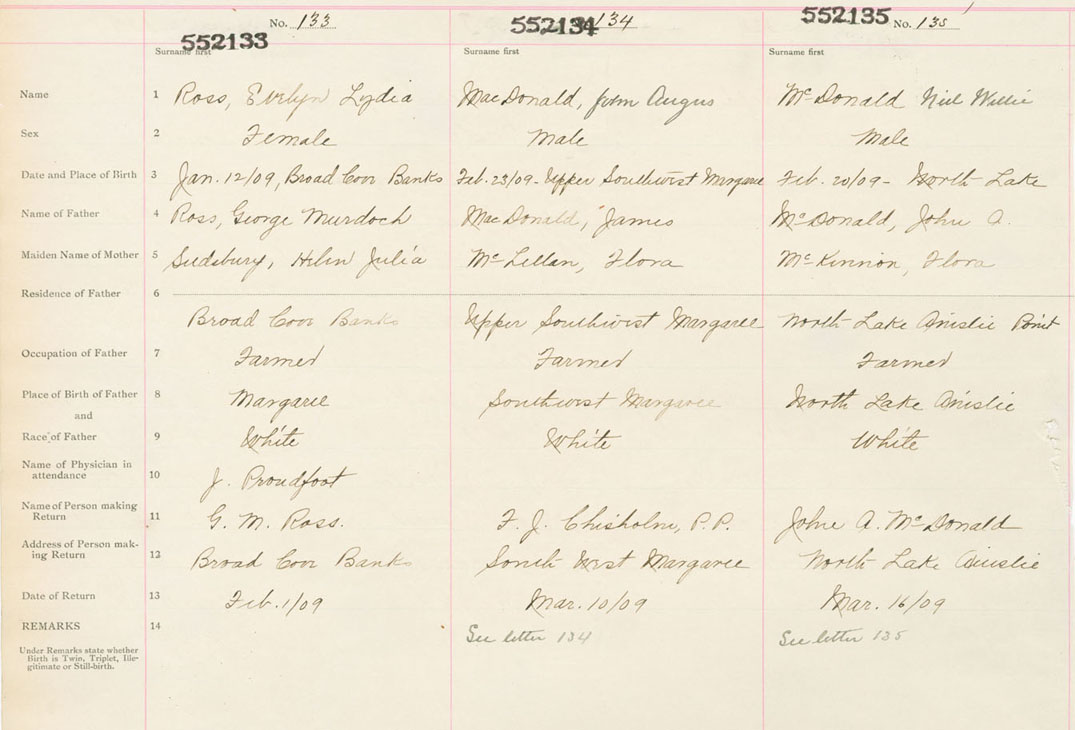 No. 133 552134 134 552135 No. 135
552133
Surname first Surname first Surname first
Name 1 Ross, Evelyn Lydia MacDonald, John Angus McDonald Neil Willie
Sex 2 Female Male Male
Date and Place of Birth 3 Jan. 12/09, Broad Cove Banks Feb. 23/09 - Upper Southwest Margaree Feb. 20/09 - North Lake
Name of Father 4 Ross, George Murdoch MacDonald, James McDonald, John A.
Maiden Name of Mother 5 Sudsbury, Helen Julia McLellan, Flora McKinnon, Flora
Residence of Father 6
Broad Cove Banks Upper Southwest Margaree North Lake Ainslie Point
Occupation of Father 7 Farmer Farmer Farmer
Place of Birth of Father 8 Margaree Southwest Margaree North Lake Ainslie
and
Race of Father 9 White White White
Name of Physician in
attendance 10 J. Proudfoot
Name of Person making
Return 11 G. M. Ross. F. J. Chisholm, P.P. John A. McDonald
Address of Person mak-
ing Return 12 Broad Cove Banks South West Margaree North Lake Ainslie
Date of Return 13 Feb. 1/09 Mar. 10/09 Mar. 16/09
REMARKS 14 See letter 134 See letter 135
Under Remarks state whether
Birth is Twin, Triplet, Ille-
gitimate or Still-birth.